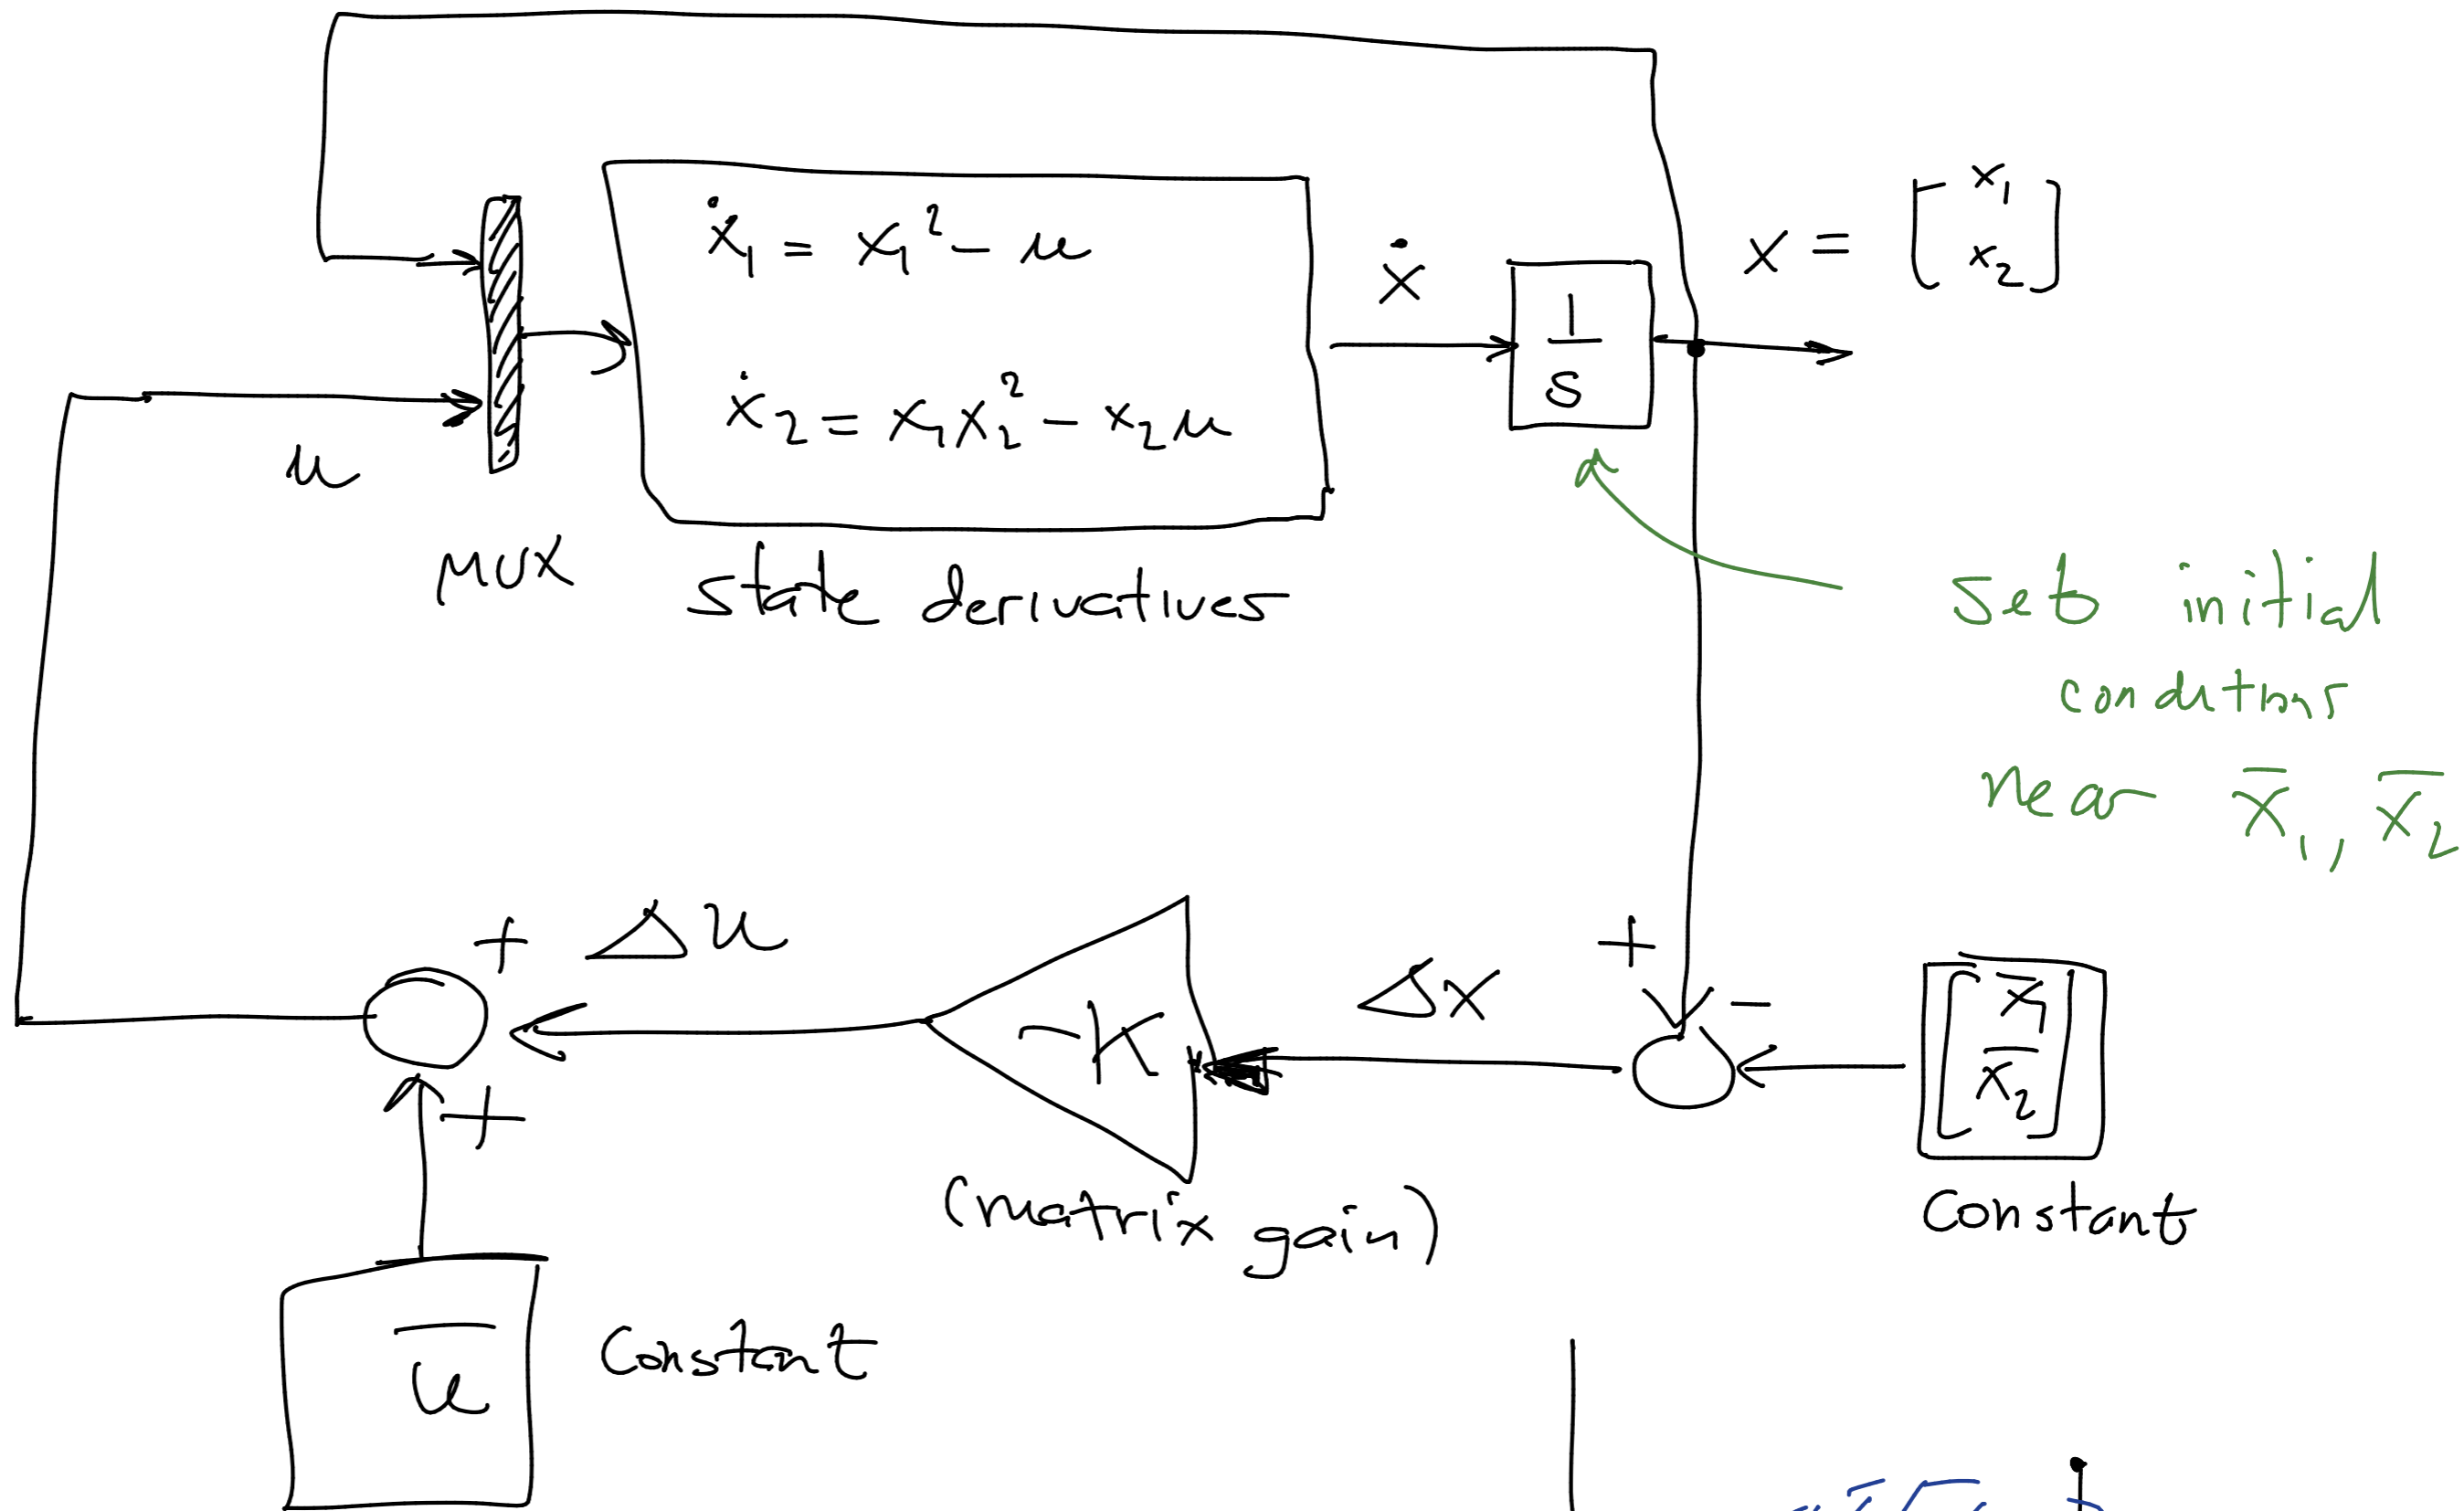 ẋ₁ = x₁² - u
ẋ₂ = x₁x₂² - x₂u
ẋ
1
s
x = [x₁
x₂]
u
MUX
state derivatives
Set initial
conditions
near x̄₁, x̄₂
+
Δu
+
-K
Δx
+
-
x̄₁
x̄₂
(matrix gain)
Constant
ū
Constant